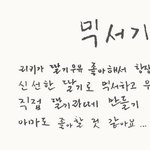 믹서기
리키가 딸기우유 좋아해서 항상
신선한 딸기로 믹서하고 우
직접 딸기라떼 만들기
아마도 좋아할 것 같아요...